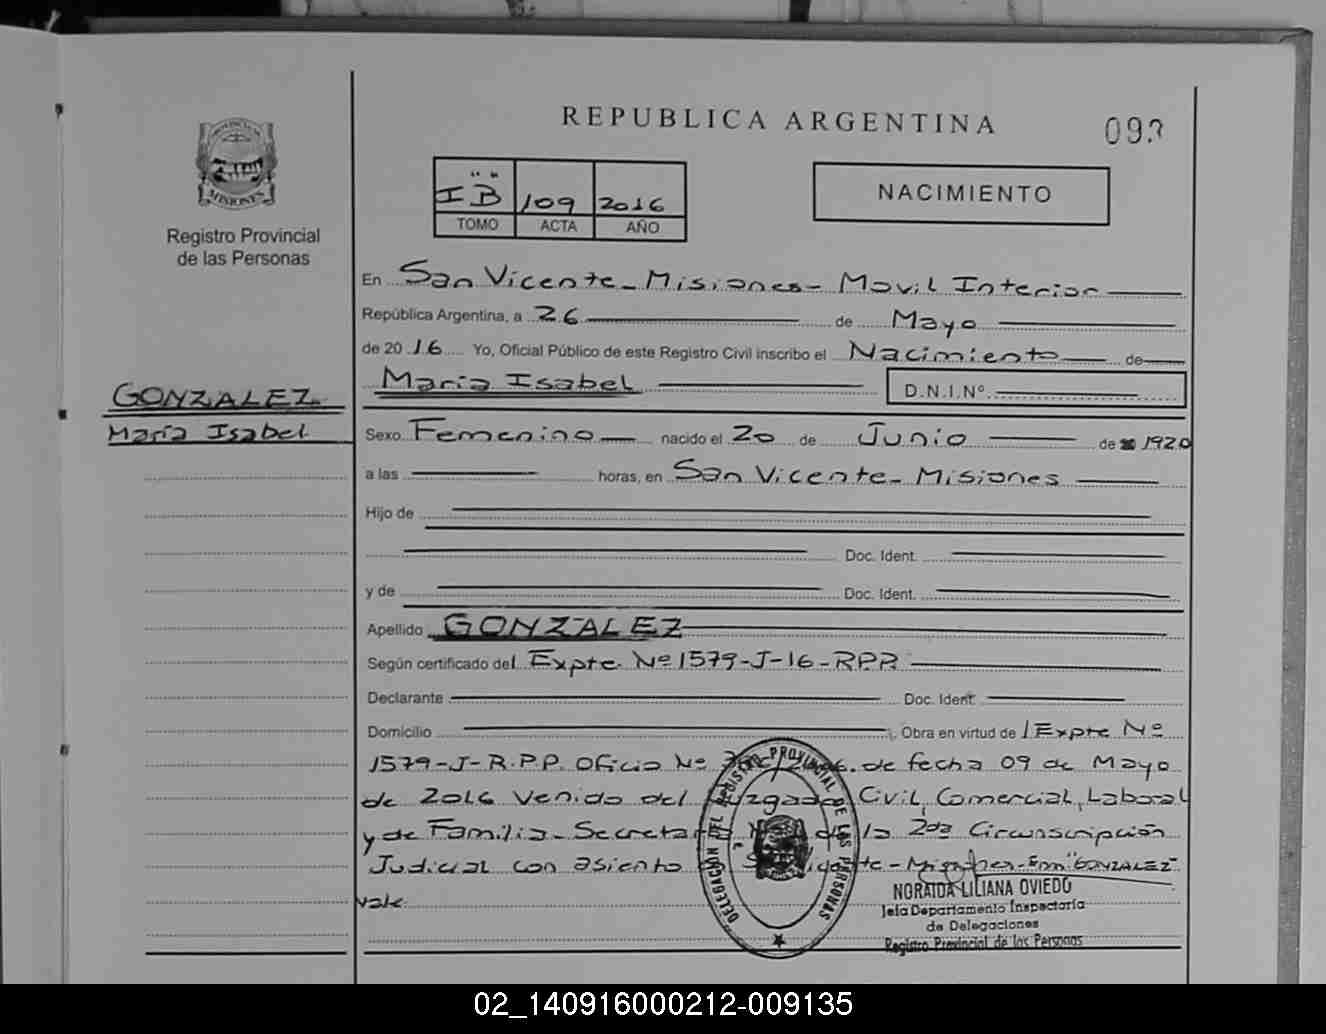 REPUBLICA ARGENTINA
PROVINCIA DE
MISIONES
Registro Provincial
de las Personas
"IB" 109 2016
TOMO ACTA AÑO
NACIMIENTO
En San Vicente - Misiones - Movil Interior
República Argentina, a 26 de Mayo
de 2016 Yo, Oficial Público de este Registro Civil inscribo el Nacimiento de
María Isabel D.N.I.Nº
GONZALEZ
María Isabel
Sexo Femenino nacido el 20 de Junio de 1920
a las horas, en San Vicente - Misiones
Hijo de
Doc. Ident.
y de Doc. Ident.
Apellido GONZALEZ
Según certificado del Expte. Nº 1579-J-16-RPP.
Declarante Doc. Ident.
Domicilio Obra en virtud de / Expte Nº
1579-J-R.P.P. Oficio Nº de fecha 09 de Mayo
de 2016 Venido del Juzgado Civil, Comercial, Laboral
y de Familia - Secretaria de la 2da Circunscripción
Judicial con asiento - Misiones - Enm "GONZALEZ"
vale
DELEGACIÓN DEL REGISTRO PROVINCIAL DE LAS PERSONAS
NORAIDA LILIANA OVIEDO
Jefa Departamento Inspectoría
de Delegaciones
Registro Provincial de las Personas
02_140916000212-009135